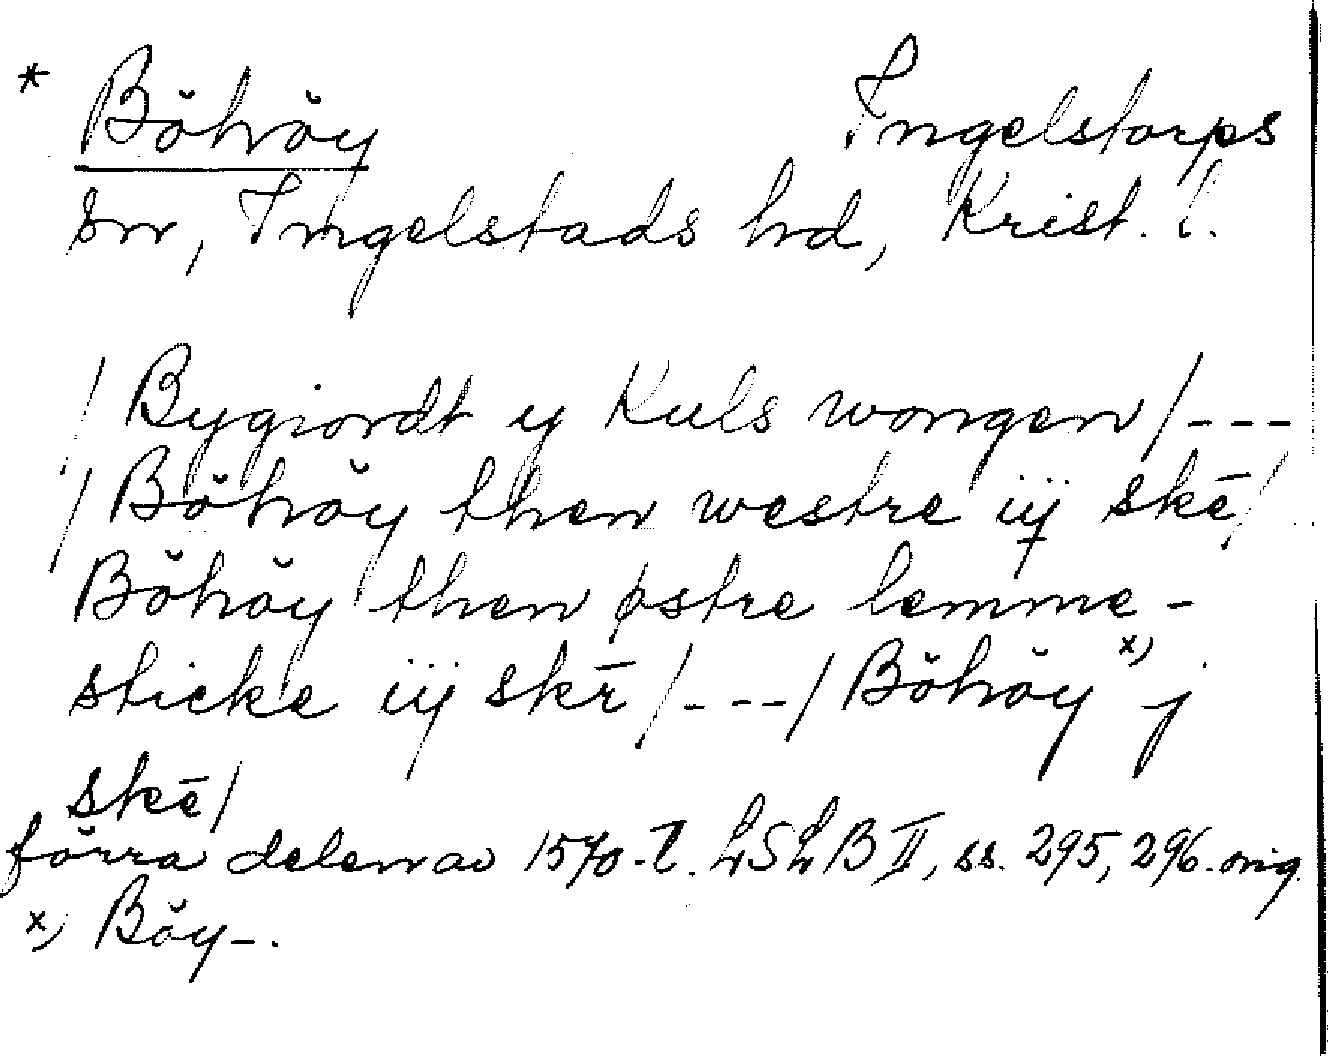 * Bŏhŏy Ingelstorps
sn, Ingelstads hd, Krist. l.
/Bygiordt y Kuls wongen/---
/Bŏhŏy then westre iij skē/
Bŏhŏy then østre lemme-
sticke iij skē/---/Bŏhŏy x) j
skē/
förra delen av 1570-t. LSLB II, ss. 295, 296. orig.
x) Bŏy-.